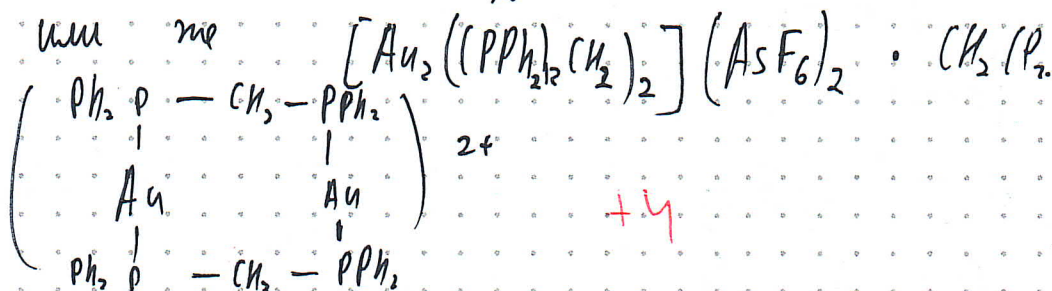 или же [Au₂((PPh₂)₂CH₂)₂](AsF₆)₂ · CH₂Cl₂
Ph₂P — CH₂ — PPh₂
2+
Au Au
+4
Ph₂P — CH₂ — PPh₂